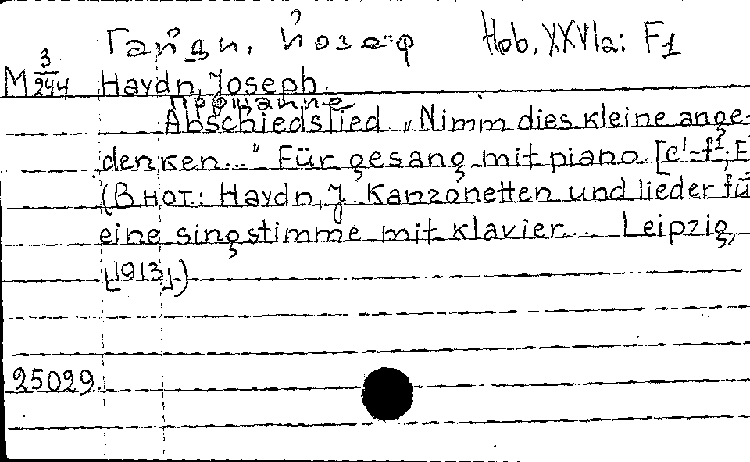 Гайдн, Йозеф Hob. XXVIa: F1
M 3/244 Haydn, Joseph.
Прощание
Abschiedslied „Nimm dies kleine ange-
denken..." Für gesang mit piano. [c'-f²; F
(В нот: Haydn, J. Kanzonetten und lieder fü
eine singstimme mit klavier... Leipzig,
[1913].)
25029.